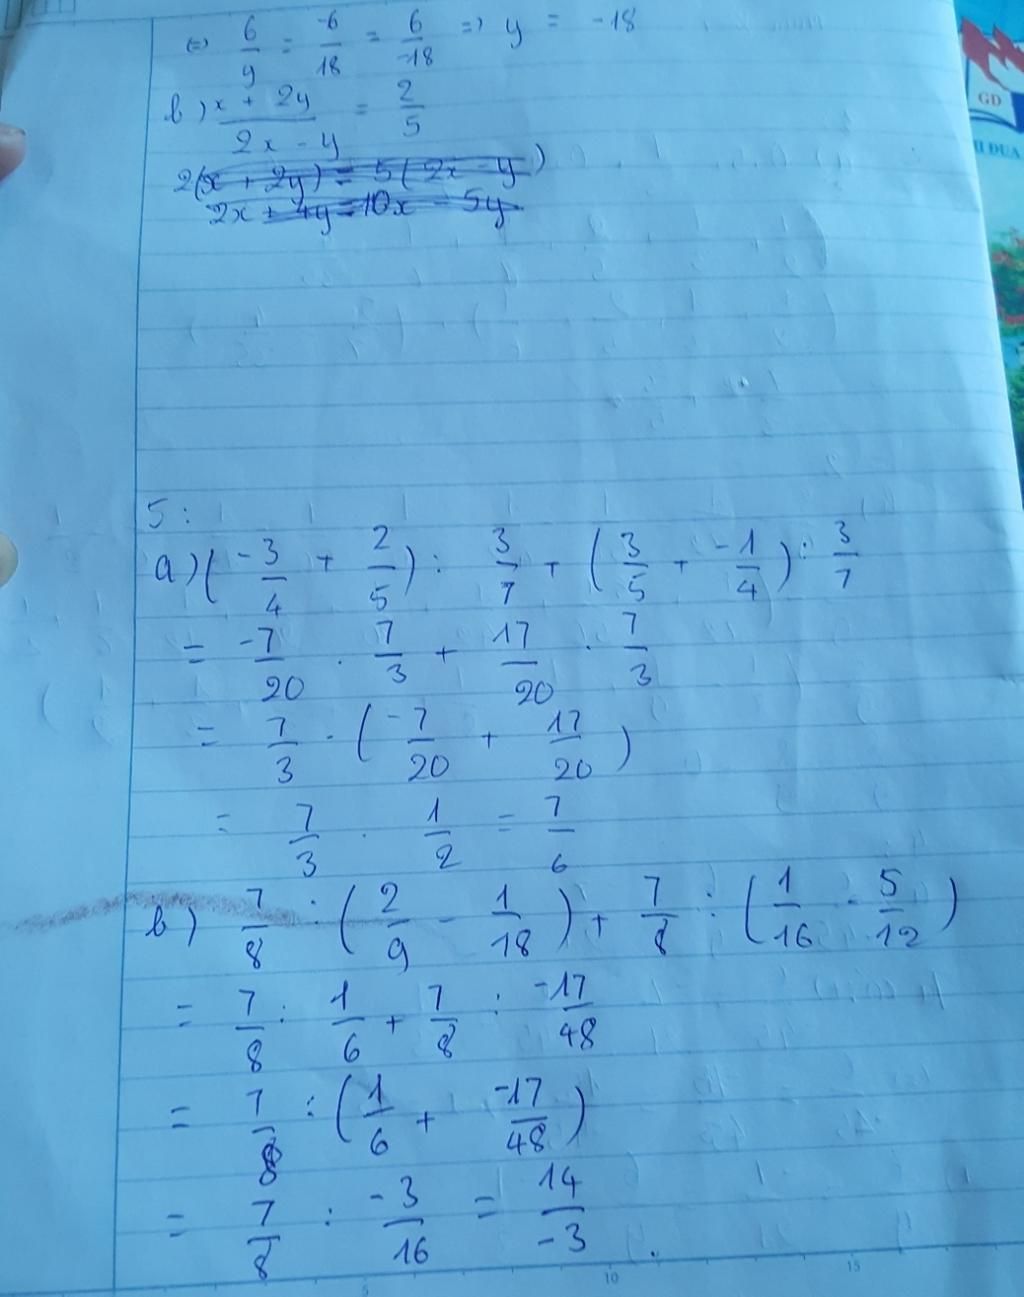 ⇔ 6/y = -6/18 = 6/-18 => y = -18
b) x + 2y / 2x - y = 2/5
2(x + 2y) = 5(2x - y)
2x + 4y = 10x - 5y
5:
a) (-3/4 + 2/5) : 3/7 + (3/5 + -1/4) : 3/7
= -7/20 . 7/3 + 17/20 . 7/3
= 7/3 . (-7/20 + 17/20)
= 7/3 . 1/2 = 7/6
b) 7/8 : (2/9 - 1/18) + 7/8 : (1/16 - 5/12)
= 7/8 : 1/6 + 7/8 : -17/48
= 7/8 : (1/6 + -17/48)
= 7/8 : -3/16 = 14/-3
5 10 15
GD
I ĐUA